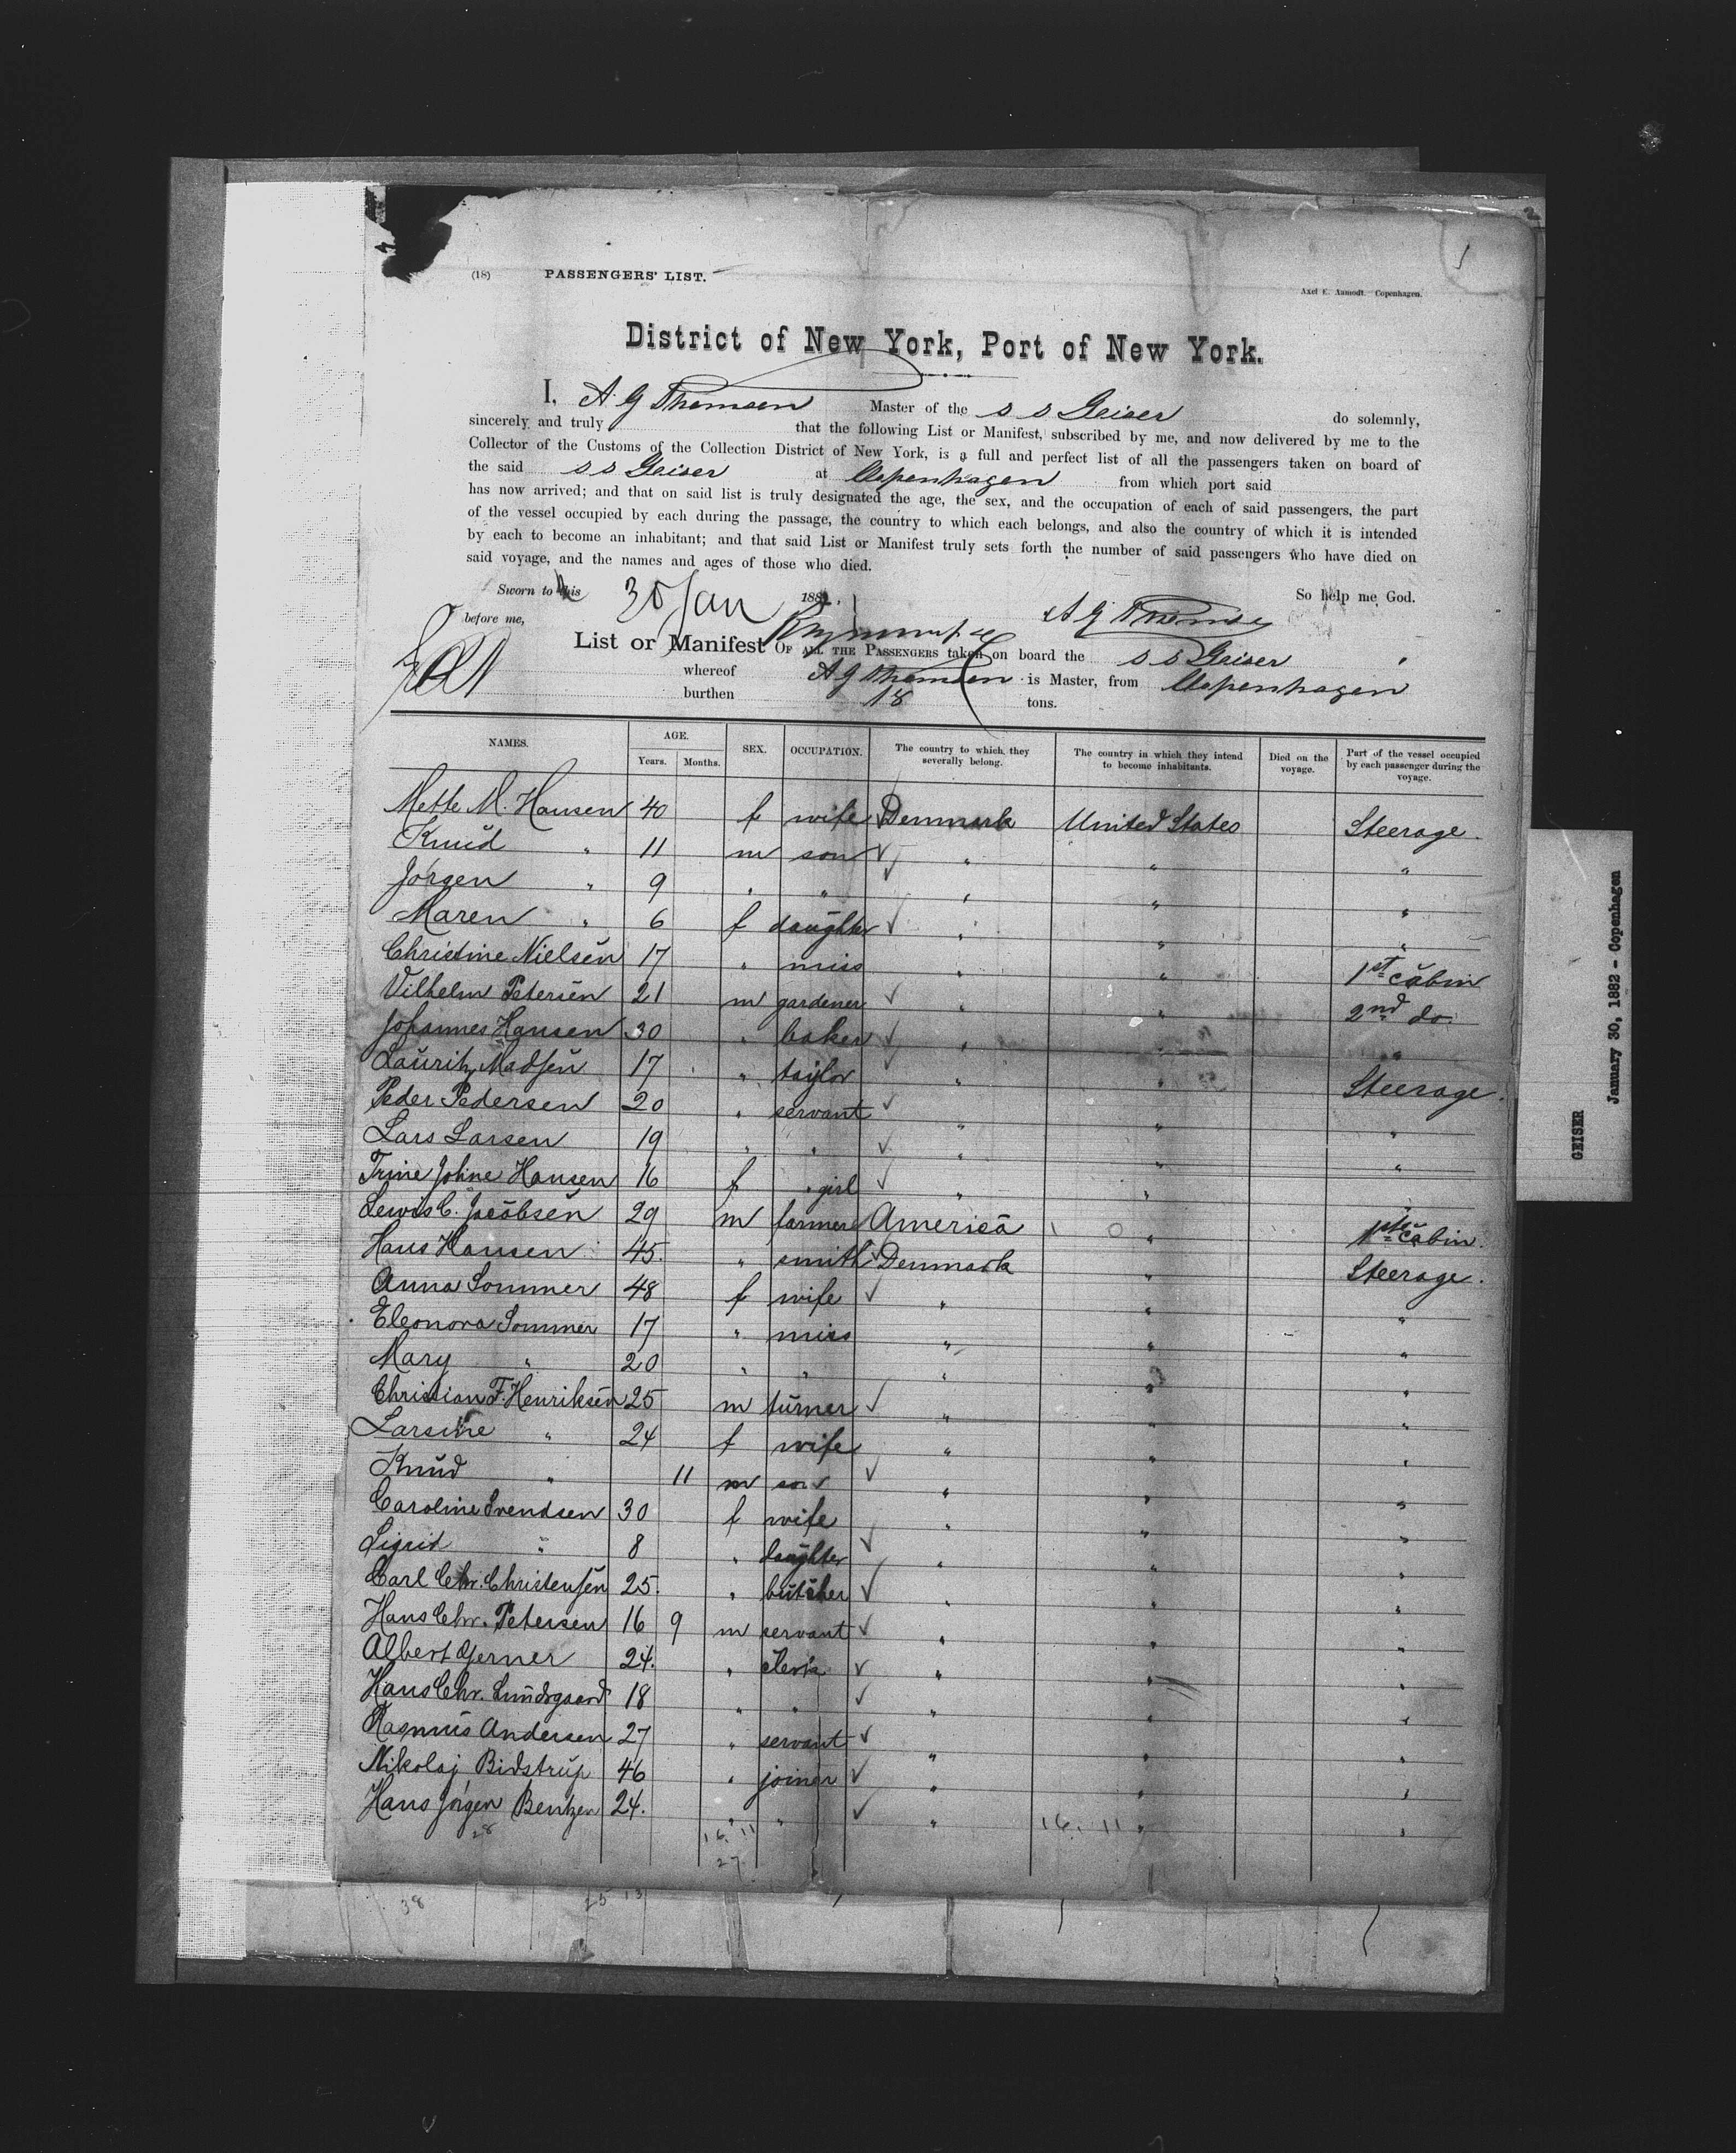 (18) PASSENGERS' LIST.
Axel E. Aamodt. Copenhagen.
District of New York, Port of New York.
I, A. G Thomsen Master of the S S Geiser do solemnly,
sincerely and truly that the following List or Manifest, subscribed by me, and now delivered by me to the
Collector of the Customs of the Collection District of New York, is a full and perfect list of all the passengers taken on board of
the said S S Geiser at Copenhagen from which port said
has now arrived; and that on said list is truly designated the age, the sex, and the occupation of each of said passengers, the part
of the vessel occupied by each during the passage, the country to which each belongs, and also the country of which it is intended
by each to become an inhabitant; and that said List or Manifest truly sets forth the number of said passengers who have died on
said voyage, and the names and ages of those who died.
Sworn to this 30 Jan 1882. So help me God.
before me, A G Thomsen
List or Manifest OF ALL THE PASSENGERS taken on board the S S Geiser
whereof A G Thomsen is Master, from Copenhagen
burthen 18 tons.
NAMES. AGE. Years. Months. SEX. OCCUPATION. The country to which they severally belong. The country in which they intend to become inhabitants. Died on the voyage. Part of the vessel occupied by each passenger during the voyage.
Mette M. Hansen 40 f wife Denmark United States Steerage.
Knud " 11 m son " " "
Jörgen " 9 " " " " "
Maren " 6 f daughter " " "
Christine Nielsen 17 " miss " " 1st cabin
Vilhelm Petersen 21 m gardener " " 2nd do.
Johannes Hansen 30 " baker " " "
Lauritz Madsen 17 " taylor " " Steerage.
Peder Pedersen 20 " servant " " "
Lars Larsen 19 " " " " "
Trine Johne Hansen 16 f " girl " " "
Lewis C. Jacobsen 29 m farmer America " 1ste cabin.
Hans Hansen 45. " smith Denmark " Steerage.
Anna Sommer 48 f wife " " "
Eleonora Sommer 17 " miss " " "
Mary " 20 " " " " "
Christian F. Henriksen 25 m turner " " "
Larsine " 24 f wife " " "
Knud " 11 m son " " "
Caroline Svendsen 30 f wife " " "
Sigrid " 8 " daughter " " "
Carl Chr. Christensen 25. " butcher " " "
Hans Chr. Petersen 16 9 m servant " " "
Albert Gerner 24. " clerk " " "
Hans Chr. Lundsgaard 18 " " " " "
Rasmus Andersen 27 " servant " " "
Nikolaj Bidstrup 46 " joiner " " "
Hans Jörgen Bentzen 24. " " " " "
28 16. 11 16. 11
27
38 25 13
GEISER
January 30, 1882 - Copenhagen